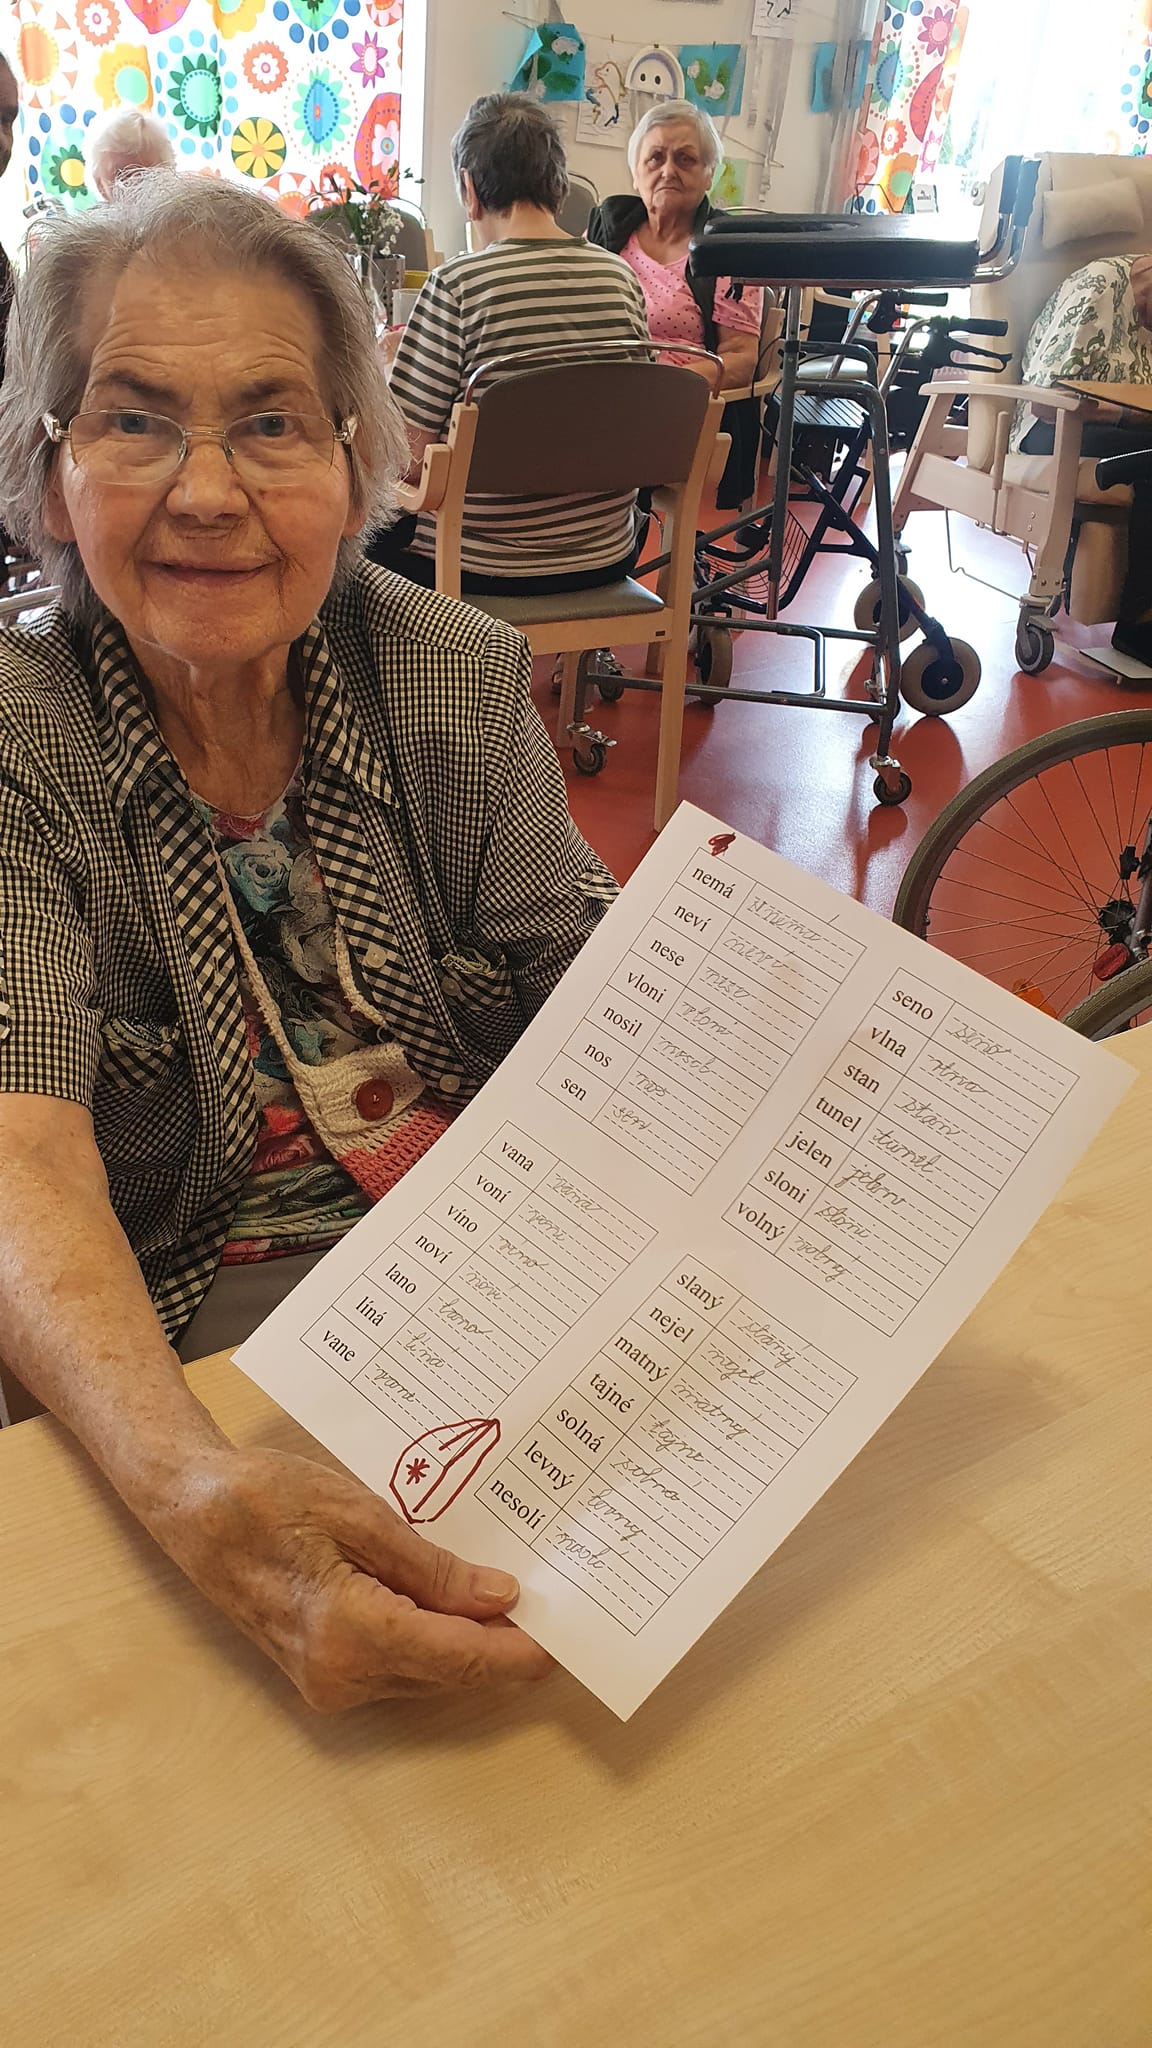 nemá nemá
neví neví
nese nese
vloni vloni
nosil nosil
nos nos
sen sen
seno seno
vlna vlna
stan stan
tunel tunel
jelen jelen
sloni sloni
volný volný
vana vana
voní voní
víno víno
noví noví
lano lano
líná líná
vane vane
slaný slaný
nejel nejel
matný matný
tajné tajné
solná solná
levný levný
nesolí nesolí